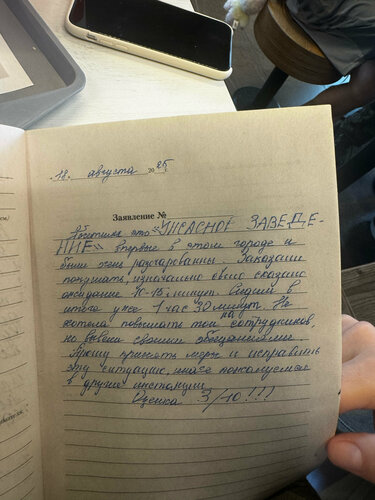 „18" августа 2025
Заявление №
Посетила это "УЖАСНОЕ ЗАВЕДЕ-
НИЕ" впервые в этом городе и
были очень разочарованы. Заказали
покушать, изначально было сказано
ожидание 10-15 минут. Сидим в
итоге уже 1 час 30 минут. Не
хотела повышать тон на сотрудников,
но вывели своими обещаниями.
Прошу принять меры и исправить
эту ситуацию, иначе пожалуемся
в другие инстанции.
Оценка 3/10!!!